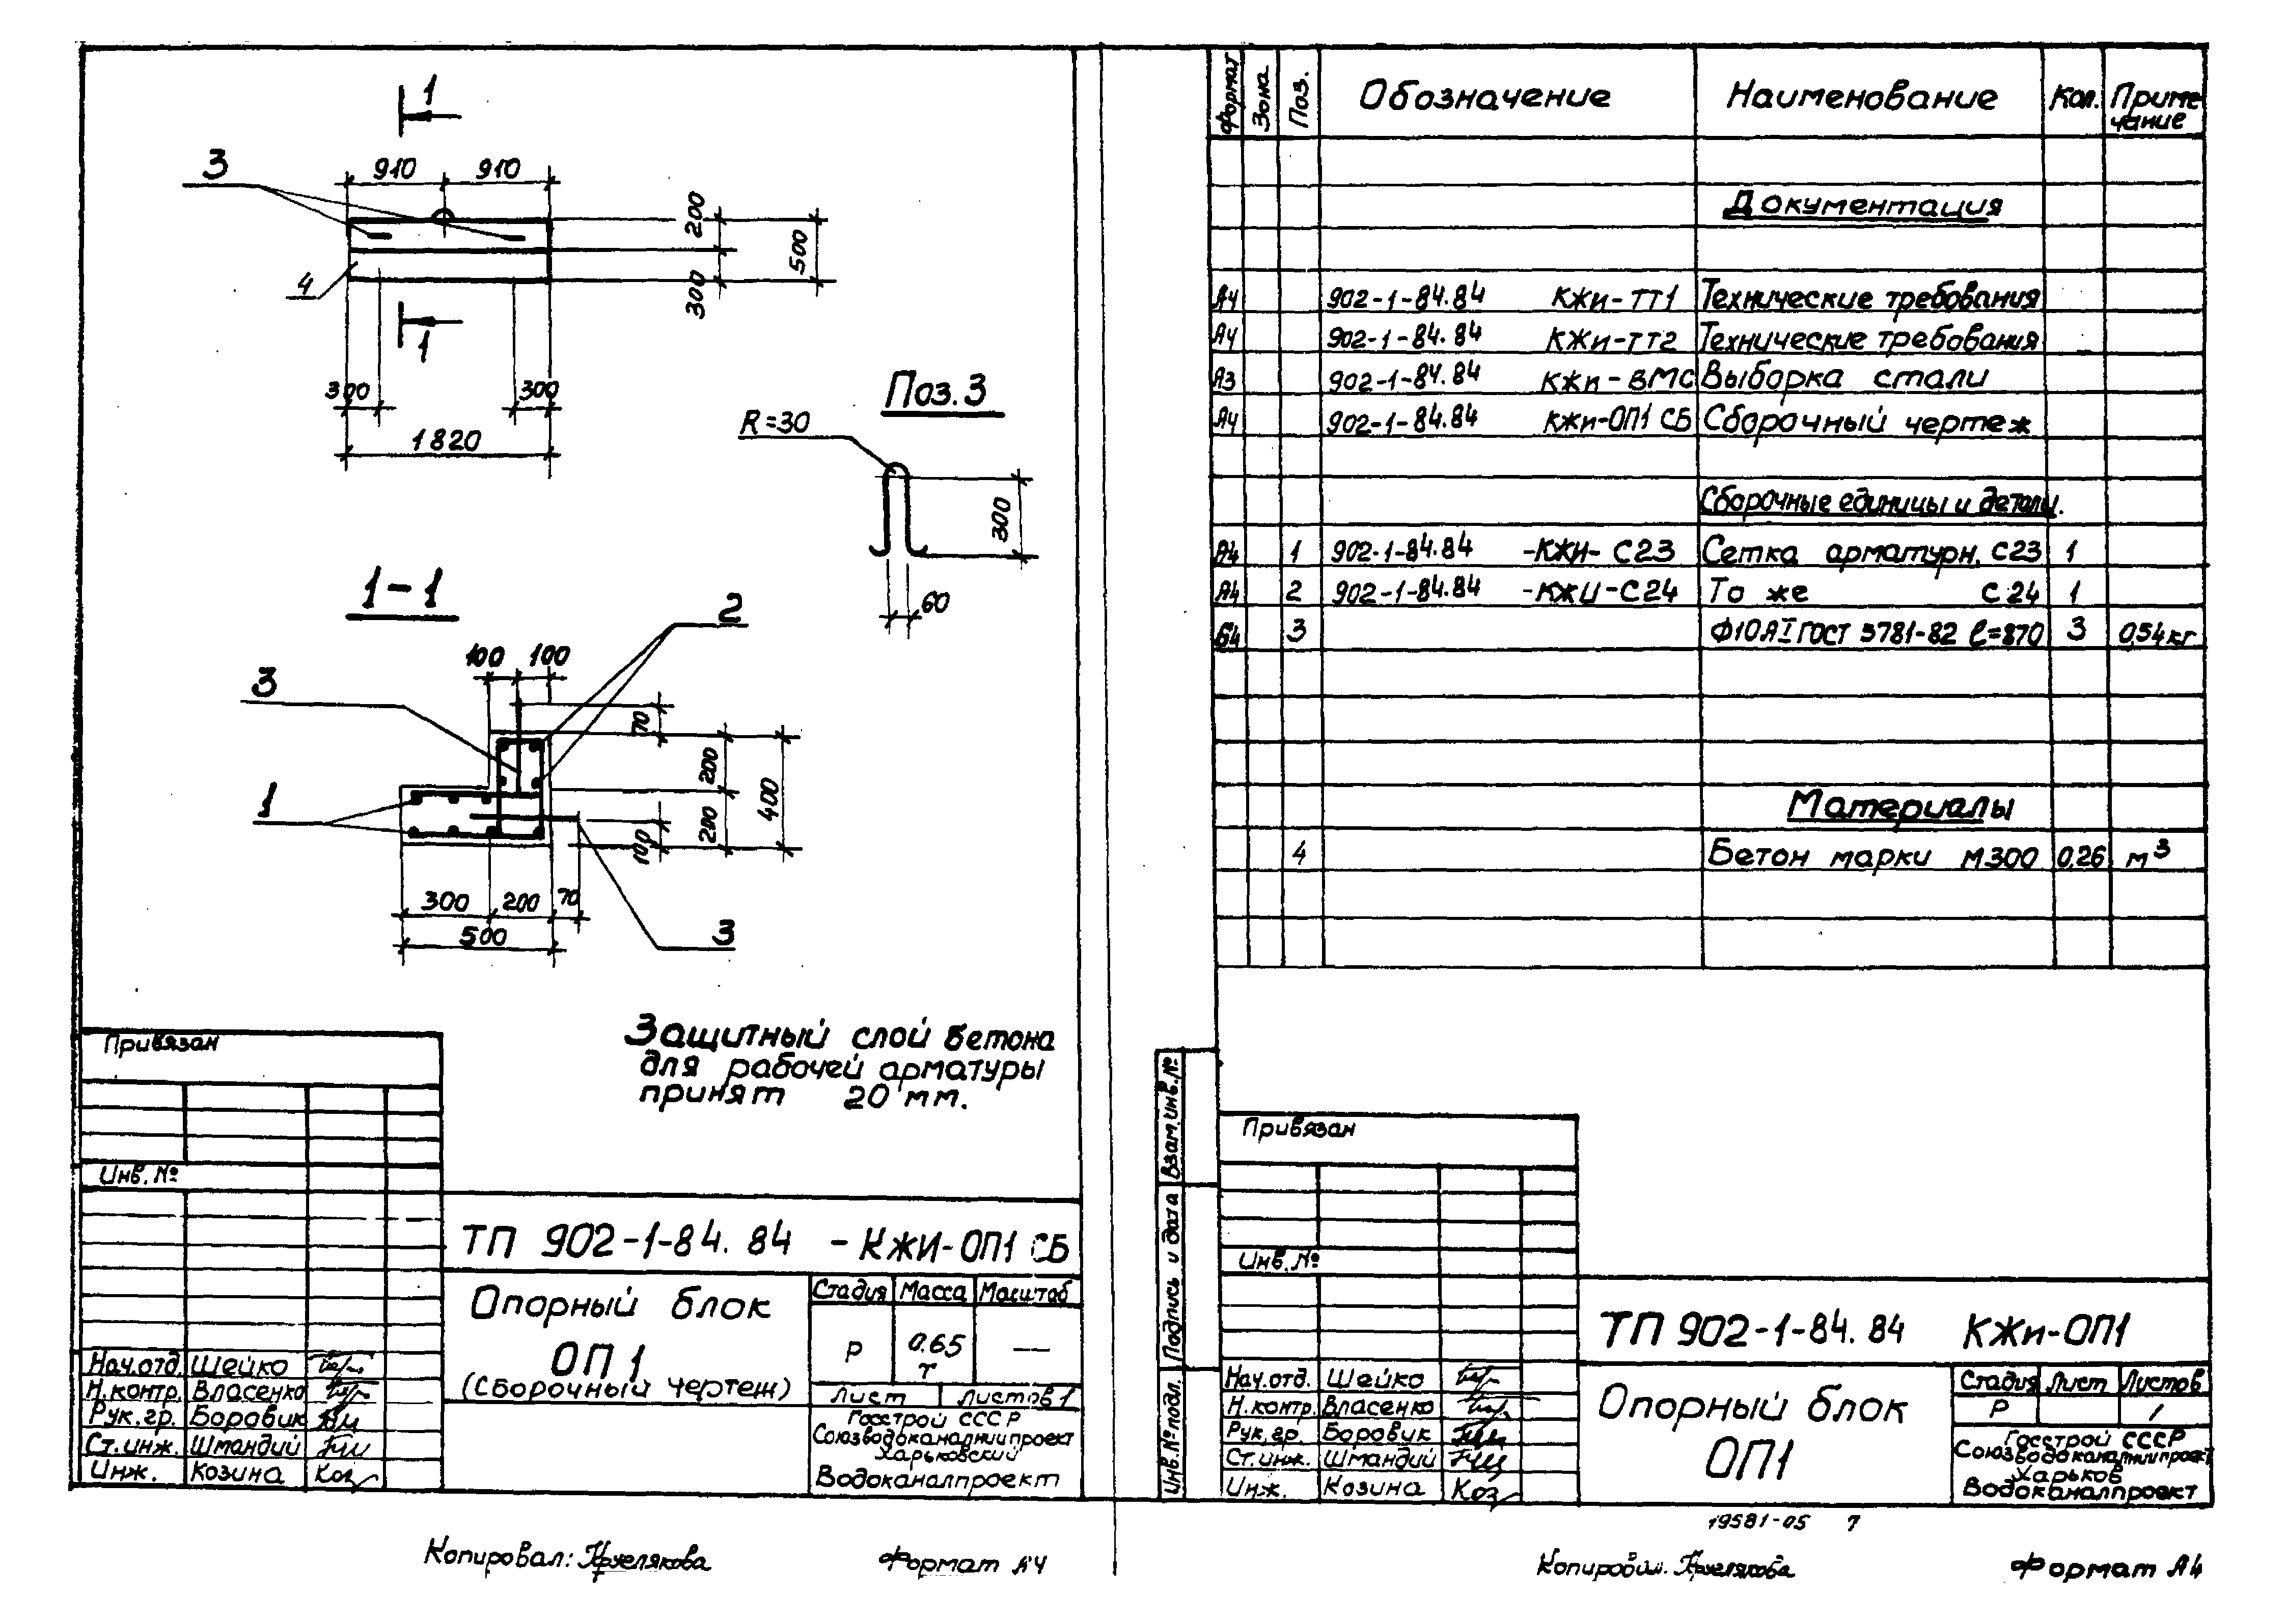 1
3
910 910
200
500
300
4
1
300 300
1820
Поз.3
R=30
300
60
1-1
2
100 100
3
70
200
400
1
200
100
300 200 70
500
3
Защитный слой бетона
для рабочей арматуры
принят 20 мм.
Привязан
Инв.№
ТП 902-1-84.84 -КЖИ-ОП1 СБ
Опорный блок
ОП1
(Сборочный чертеж)
Стадия Масса Масштаб
Р 0.65 т —
Лист Листов 1
Госстрой СССР
Союзводоканалниипроект
Харьковский
Водоканалпроект
Нач.отд. Шейко
Н.контр. Власенко
Рук.гр. Боровик
Ст.инж. Шмандий
Инж. Козина Коз
Копировал: Формат А4
Формат Зона Поз. Обозначение Наименование Кол. Примечание
Документация
А4 902-1-84.84 КЖи-ТТ1 Технические требования
А4 902-1-84.84 КЖи-ТТ2 Технические требования
А3 902-1-84.84 КЖи-ВМС Выборка стали
А4 902-1-84.84 КЖи-ОП1 СБ Сборочный чертеж
Сборочные единицы и детали.
А4 1 902-1-84.84 -КЖИ-С23 Сетка арматурн. С23 1
А4 2 902-1-84.84 -КЖИ-С24 То же С24 1
Б4 3 Ф10АI ГОСТ 5781-82 ℓ=870 3 0,54кг
Материалы
4 Бетон марки М300 0,26 м³
Взам.инв.№
Подпись и дата
Инв.№подл.
Привязан
Инв.№
ТП 902-1-84.84 КЖи-ОП1
Опорный блок
ОП1
Стадия Лист Листов
Р 1
Госстрой СССР
Союзводоканалниипроект
Харьков
Водоканалпроект
Нач.отд. Шейко
Н.контр. Власенко
Рук.гр. Боровик
Ст.инж. Шмандий
Инж. Козина Коз
19581-05 7
Копировал: Формат А4